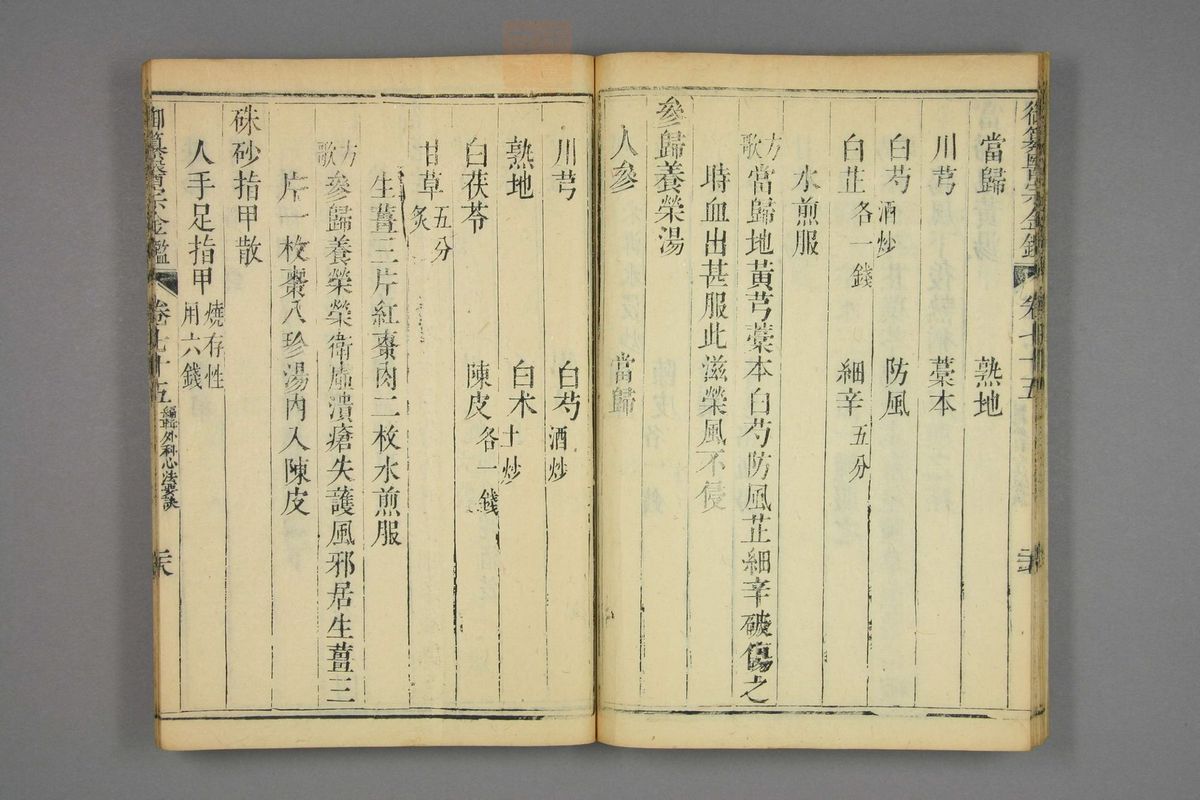 御纂醫宗金鑑 卷七十五
當歸 熟地
川芎 藁本
白芍酒炒 防風
白芷各一錢 細辛五分
水煎服
方歌 當歸地黃芎藁本白芍防風芷細辛破傷之
時血出甚服此滋榮風不侵
參歸養榮湯
人參 當歸
川芎 白芍酒炒
熟地 白朮土炒
白茯苓 陳皮各一錢
甘草炙五分
生薑三片紅棗肉二枚水煎服
方歌 參歸養榮榮衛虛潰瘡失護風邪居生薑三
片一枚棗八珍湯內入陳皮
硃砂指甲散
人手足指甲燒存性用六錢
御纂醫宗金鑑 卷七十五 編輯外科心法要訣